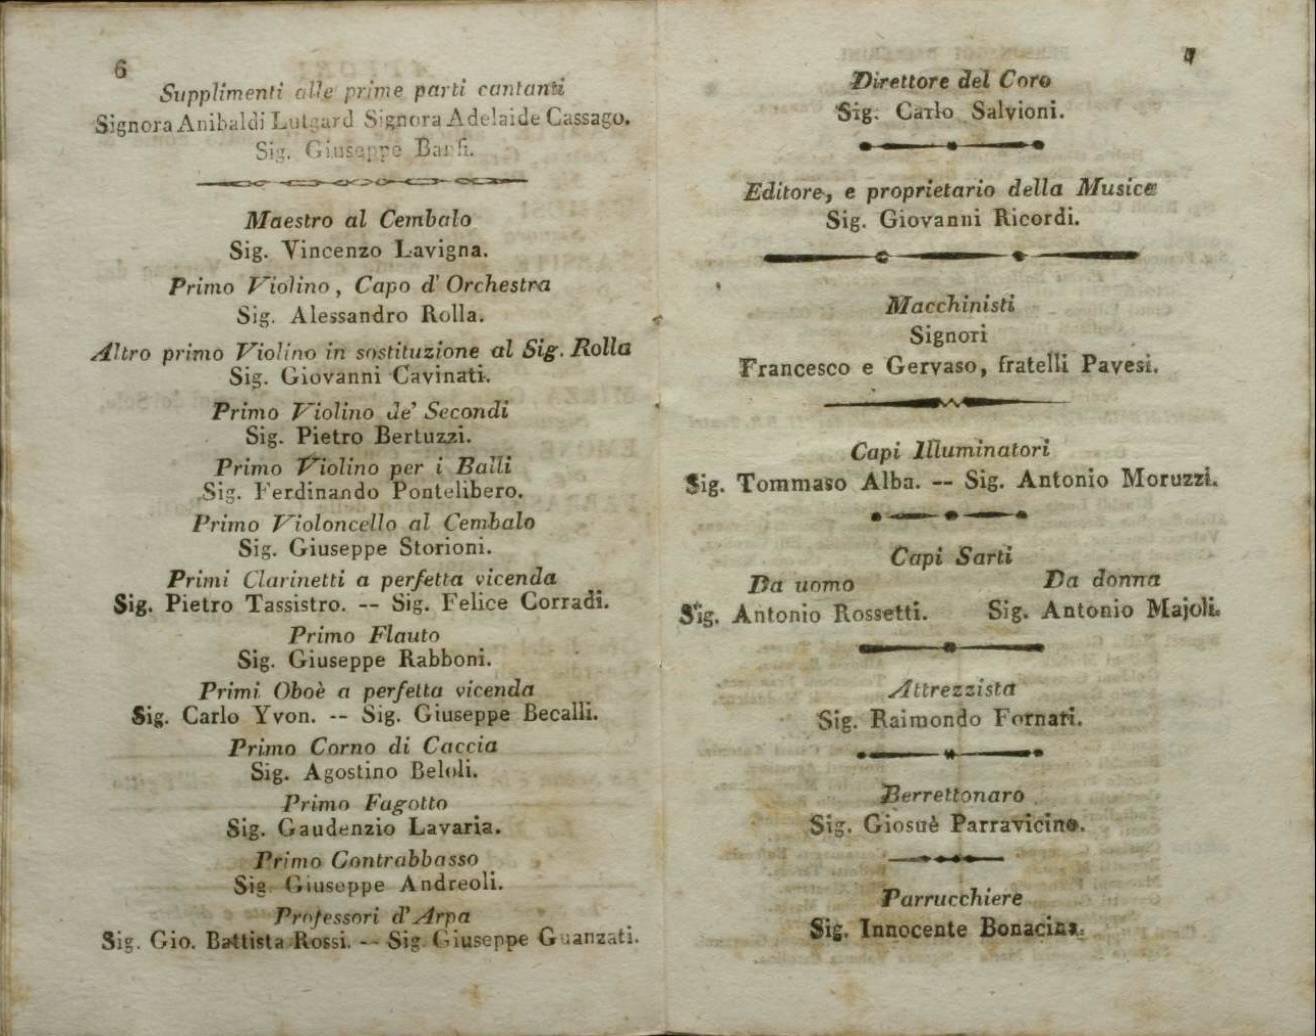 6
Supplimenti alle prime parti cantanti
Signora Anibaldi Lutgard Signora Adelaide Cassago.
Sig. Giuseppe Barfi.
Maestro al Cembalo
Sig. Vincenzo Lavigna.
Primo Violino, Capo d'Orchestra
Sig. Alessandro Rolla.
Altro primo Violino in sostituzione al Sig. Rolla
Sig. Giovanni Cavinati.
Primo Violino de' Secondi
Sig. Pietro Bertuzzi.
Primo Violino per i Balli
Sig. Ferdinando Pontelibero.
Primo Violoncello al Cembalo
Sig. Giuseppe Storioni.
Primi Clarinetti a perfetta vicenda
Sig. Pietro Tassistro. -- Sig. Felice Corradi.
Primo Flauto
Sig. Giuseppe Rabboni.
Primi Oboè a perfetta vicenda
Sig. Carlo Yvon. -- Sig. Giuseppe Becalli.
Primo Corno di Caccia
Sig. Agostino Beloli.
Primo Fagotto
Sig. Gaudenzio Lavaria.
Primo Contrabbasso
Sig. Giuseppe Andreoli.
Professori d'Arpa
Sig. Gio. Battista Rossi. -- Sig. Giuseppe Guanzati.
7
Direttore del Coro
Sig. Carlo Salvioni.
Editore, e proprietario della Musica
Sig. Giovanni Ricordi.
Macchinisti
Signori
Francesco e Gervaso, fratelli Pavesi.
Capi Illuminatori
Sig. Tommaso Alba. -- Sig. Antonio Moruzzi.
Capi Sarti
Da uomo Da donna
Sig. Antonio Rossetti. Sig. Antonio Majoli.
Attrezzista
Sig. Raimondo Fornari.
Berrettonaro
Sig. Giosuè Parravicino.
Parrucchiere
Sig. Innocente Bonacina.